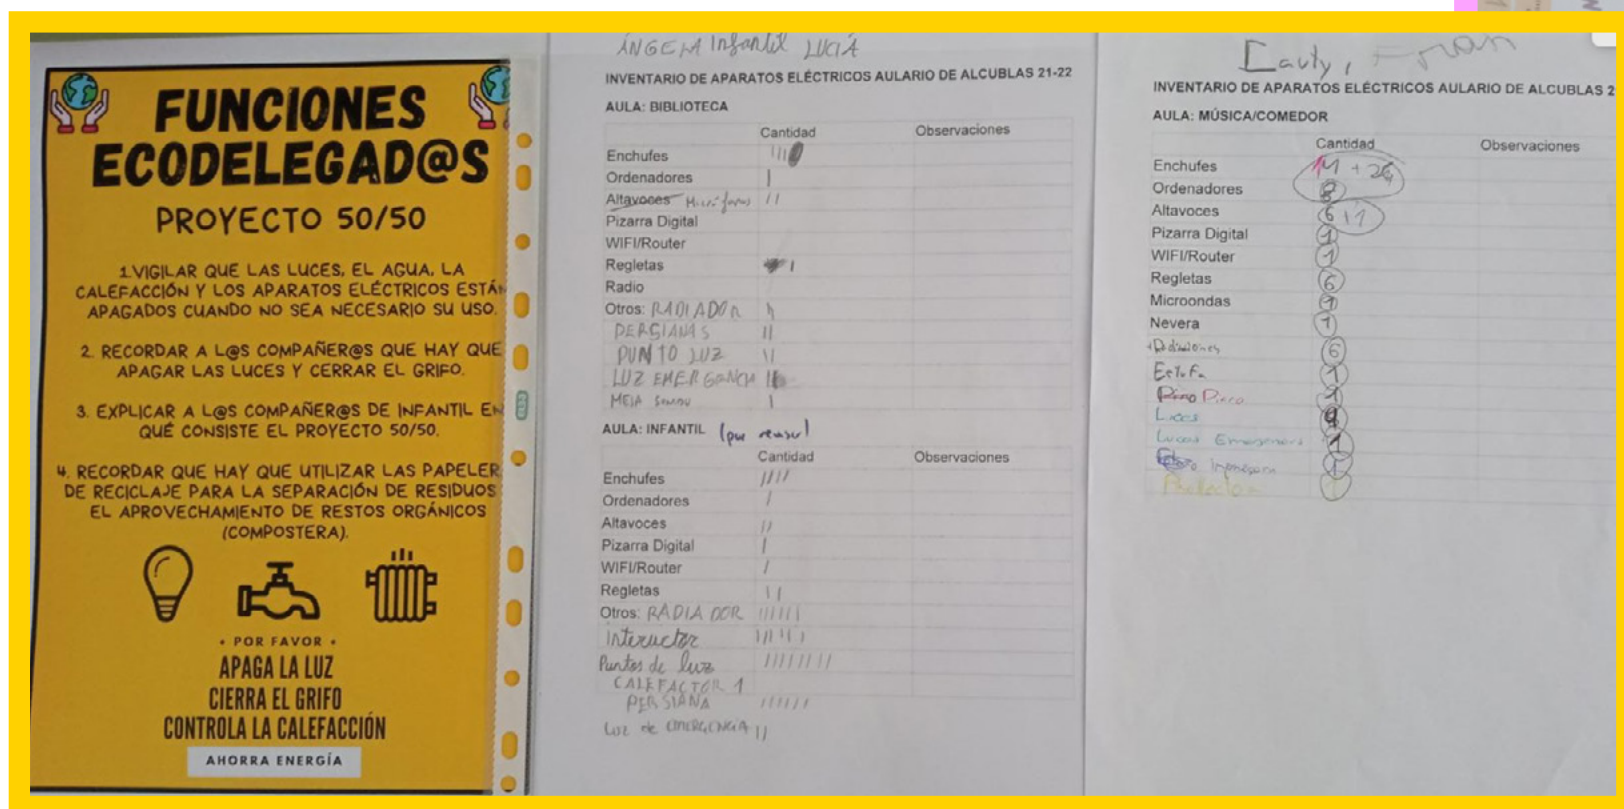 FUNCIONES
ECODELEGAD@S
PROYECTO 50/50
1.VIGILAR QUE LAS LUCES, EL AGUA, LA
CALEFACCIÓN Y LOS APARATOS ELÉCTRICOS ESTÁN
APAGADOS CUANDO NO SEA NECESARIO SU USO.
2. RECORDAR A L@S COMPAÑER@S QUE HAY QUE
APAGAR LAS LUCES Y CERRAR EL GRIFO.
3. EXPLICAR A L@S COMPAÑER@S DE INFANTIL EN
QUÉ CONSISTE EL PROYECTO 50/50.
4. RECORDAR QUE HAY QUE UTILIZAR LAS PAPELER
DE RECICLAJE PARA LA SEPARACIÓN DE RESIDUOS
EL APROVECHAMIENTO DE RESTOS ORGÁNICOS
(COMPOSTERA).
• POR FAVOR •
APAGA LA LUZ
CIERRA EL GRIFO
CONTROLA LA CALEFACCIÓN
AHORRA ENERGÍA
ÁNGELA Infantil LUCÍA
INVENTARIO DE APARATOS ELÉCTRICOS AULARIO DE ALCUBLAS 21-22
AULA: BIBLIOTECA
Cantidad Observaciones
Enchufes III
Ordenadores I
Altavoces II
Pizarra Digital
WIFI/Router
Regletas I
Radio
Otros: RADIADOR
PERSIANAS II
PUNTO LUZ II
LUZ EMERGENCIA
MESA I
AULA: INFANTIL
Cantidad Observaciones
Enchufes IIII
Ordenadores I
Altavoces II
Pizarra Digital I
WIFI/Router I
Regletas II
Otros: RADIADOR IIIIII
Inteructor IIIIII
Puntos de luz IIIIIIII
CALEFACTOR 1
PERSIANA IIIIII
Luz de EMERGENCIA II
Fran
INVENTARIO DE APARATOS ELÉCTRICOS AULARIO DE ALCUBLAS 2
AULA: MÚSICA/COMEDOR
Cantidad Observaciones
Enchufes
Ordenadores
Altavoces 6+1
Pizarra Digital 1
WIFI/Router 1
Regletas 6
Microondas 1
Nevera 1
6
Estufa 1
Piano
Luces
Luces 1
1